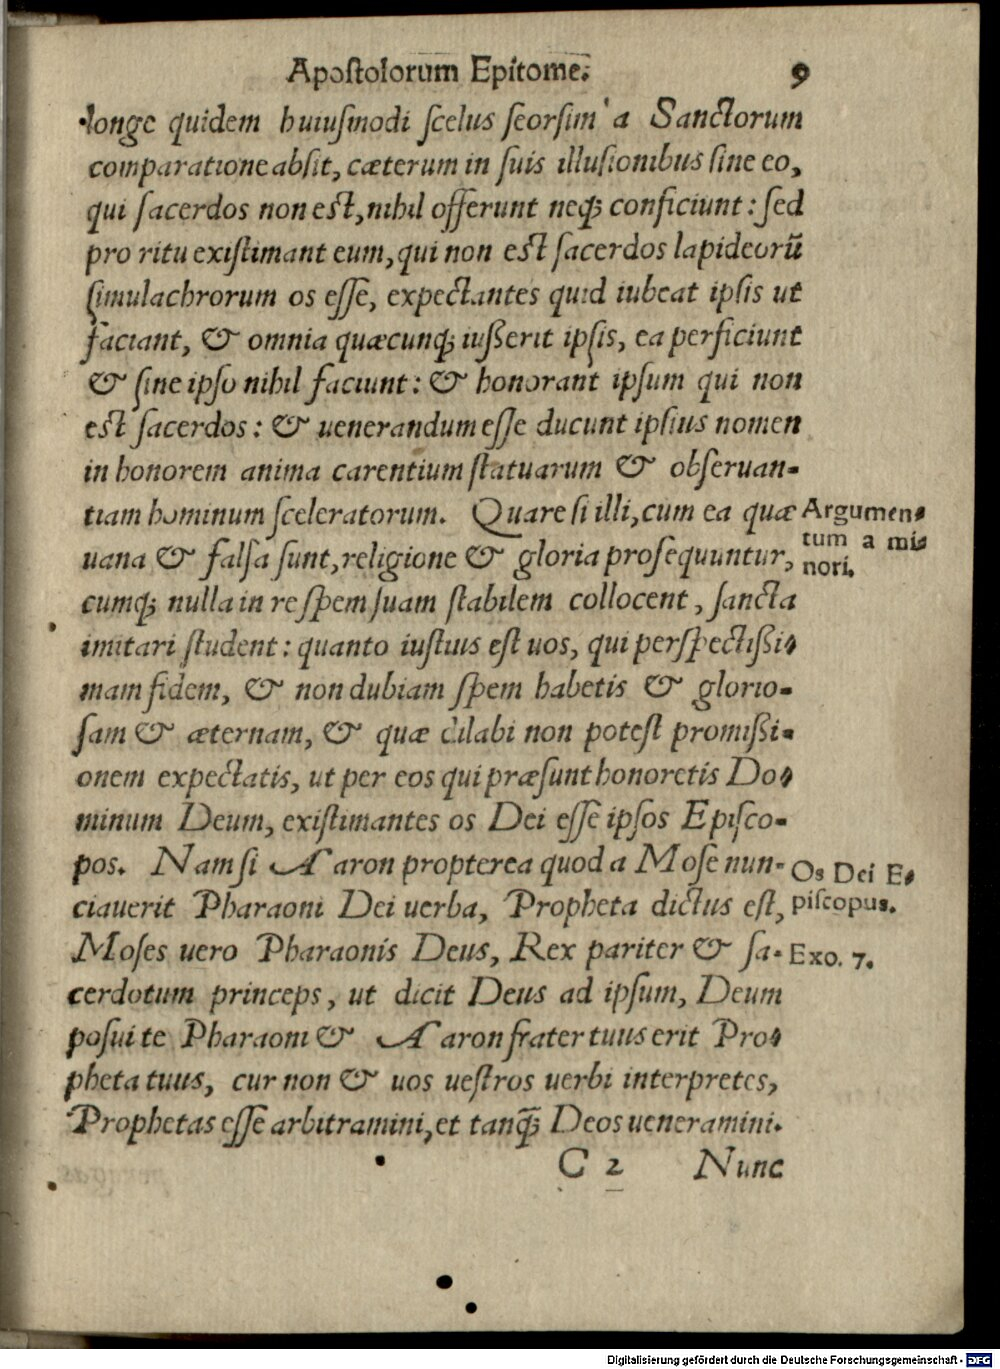 Apoſtolorum Epitome. 9
longe quidem huiuſmodi ſcelus ſeorſim à Sanctorum
comparatione abſit, cæterum in ſuis illuſionibus ſine eo,
qui ſacerdos non eſt, nihil offerunt neq; conficiunt: ſed
pro ritu exiſtimant eum, qui non eſt ſacerdos lapideorū
ſimulachrorum os eſſe, expectantes quid iubeat ipſis ut
faciant, & omnia quæcunq; iußerit ipſis, ea perficiunt
& ſine ipſo nihil faciunt: & honorant ipſum qui non
eſt ſacerdos: & uenerandum eſſe ducunt ipſius nomen
in honorem anima carentium ſtatuarum & obſeruan-
tiam hominum ſceleratorum. Quare ſi illi, cum ea quæ
uana & falſa ſunt, religione & gloria proſequuntur,
cumq; nulla in re ſpem ſuam ſtabilem collocent, ſancta
imitari ſtudent: quanto iuſtius eſt uos, qui perſpectißi-
mam fidem, & non dubiam ſpem habetis & glorio-
ſam & æternam, & quæ dilabi non poteſt promißi-
onem expectatis, ut per eos qui præſunt honoretis Do-
minum Deum, exiſtimantes os Dei eſſe ipſos Epiſco-
pos. Nam ſi Aaron propterea quod a Moſe nun-
ciauerit Pharaoni Dei uerba, Propheta dictus eſt,
Moſes uero Pharaonis Deus, Rex pariter & ſa-
cerdotum princeps, ut dicit Deus ad ipſum, Deum
poſui te Pharaoni & Aaron frater tuus erit Pro-
pheta tuus, cur non & uos ueſtros uerbi interpretes,
Prophetas eſſe arbitramini, et tanq̃; Deos ueneramini.
C 2 Nunc
Argumen-
tum a mi-
nori.
Os Dei E-
piſcopus.
Exo. 7.
Digitalisierung gefördert durch die Deutsche Forschungsgemeinschaft - DFG